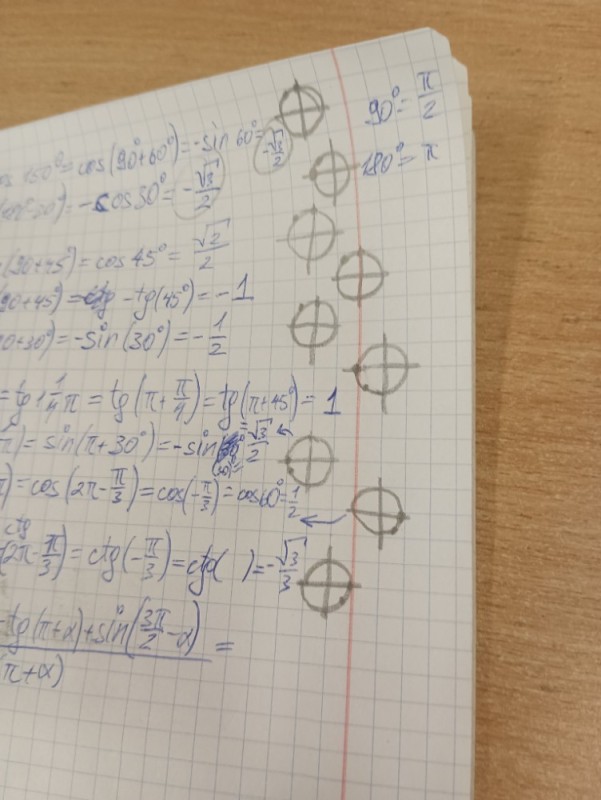 cos 150° = cos(90°+60°) = -sin 60° = -√3/2
= -cos 30° = -√3/2
(90+45°) = cos 45° = √2/2
90+45°) = -tg(45°) = -1
+30°) = -sin(30°) = -1/2
= tg 1 1/4 π = tg(π + π/4) = tg(π+45°) = 1
π) = sin(π+30°) = -sin = √3/2
π) = cos(2π - π/3) = cos(-π/3) = cos 60° = 1/2
ctg
(2π - π/3) = ctg(-π/3) = ctg( ) = -√3/3
-tg(π+α) + sin(3π/2 - α)
=
(π+α)
90° = π/2
180° = π